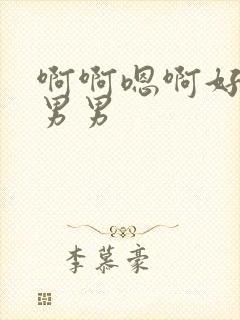 啊啊嗯啊好
男男
李慕豪